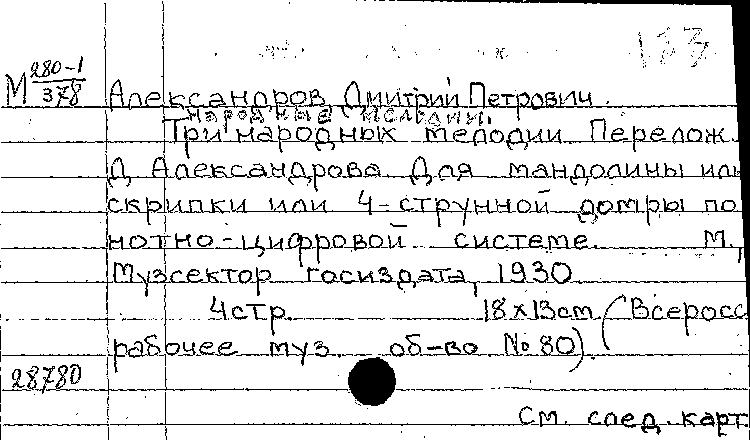 М 280-1/378
Александров, Дмитрий Петрович.
Народные мелодии.
Три народных мелодии Перелож.
Д Александрова Для мандолины или
скрипки или 4-струнной домры по
нотно-цифровой системе. М.,
Музсектор госиздата, 1930
4стр. 18х13cm. (Всеросс
рабочее муз. об-во № 80).
28780
См. след. карт